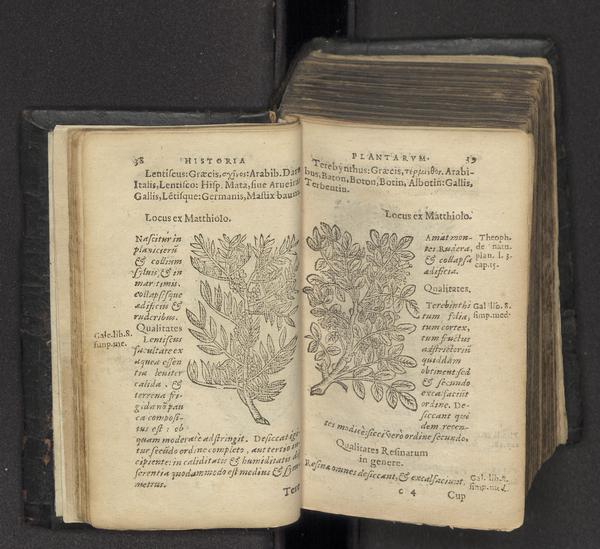 38 HISTORIA
Lentiscus: Græcis, σχῖνος: Arabib. Daru
Italis, Lentisco: Hisp. Mata, siue Arueira:
Gallis, Lẽtisque: Germanis, Mastix baum.
Locus ex Matthiolo.
Nascitur in
planicierũ
& collium
syluis & in
maritimis,
collapsisque
ædificiis &
ruderibus.
Qualitates
Gale. lib. 8.
simp. me.
Lentiscus
facultate ex
aquea essen
tia leniter
calida, &
terrena fri-
gida nõ pau
ca composi-
tus est: ob
quam moderatè adstringit. Desiccat igi-
tur secũdo ordine completo, aut tertio in-
cipiente: in caliditatis & humiditatis dif
ferentia quodammodo est medius &
metrus.
Tere
PLANTARVM. 39
Terebynthus: Græcis, τέρμινθος. Arabi-
bus, Baton, Boton, Botin, Albotin: Gallis,
Terbentin.
Locus ex Matthiolo.
Amat mon-
tes. Rudera,
& collapsa
ædificia.
Theoph.
de natu.
plan. l. 3.
cap. 15.
Qualitates.
Terebinthi
tum folia,
tum cortex,
tum fructus
adstrictoriũ
quiddam
obtinent: sed
& secundo
excalfaciũt
ordine. De-
siccant qui
dem recen-
tes modicè: sicci verò ordine secundo.
Gal. lib. 8.
simp. med.
Qualitates Resinarum
in genere.
Resinæ omnes desiccant, & excalfaciunt.
Gal. lib. 8.
simp. med.
C 4 Cup